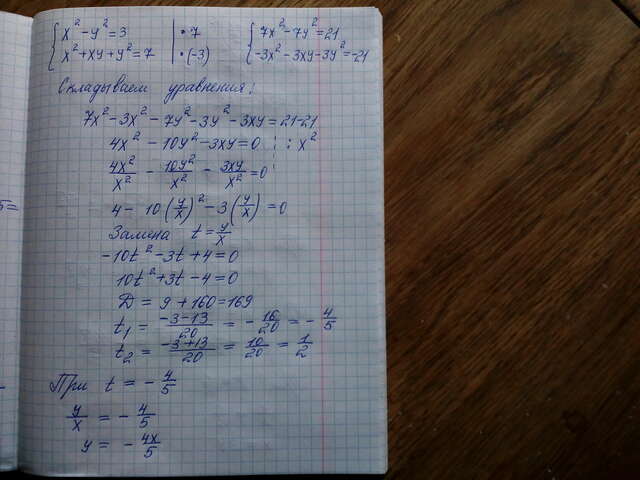 { x² - y² = 3 | · 7 { 7x² - 7y² = 21
x² + xy + y² = 7 | · (-3) -3x² - 3xy - 3y² = -21
Складываем уравнения:
7x² - 3x² - 7y² - 3y² - 3xy = 21-21
4x² - 10y² - 3xy = 0 | : x²
4x²/x² - 10y²/x² - 3xy/x² = 0
4 - 10(y/x)² - 3(y/x) = 0
Замена t = y/x
-10t² - 3t + 4 = 0
10t² + 3t - 4 = 0
D = 9 + 160 = 169
t₁ = (-3-13)/20 = - 16/20 = - 4/5
t₂ = (-3+13)/20 = 10/20 = 1/2
При t = - 4/5
y/x = - 4/5
y = - 4x/5
5=